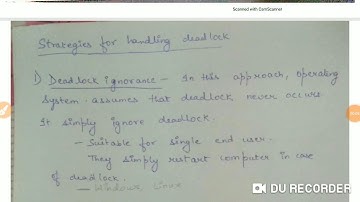 Scanned with CamScanner
Strategies for handling deadlock
1) Deadlock ignorance - In this approach, operating
system assumes that deadlock never occurs.
It simply ignore deadlock.
- Suitable for single end user.
They simply restart computer in case
of deadlock.
- Windows, Linux
DU RECORDER